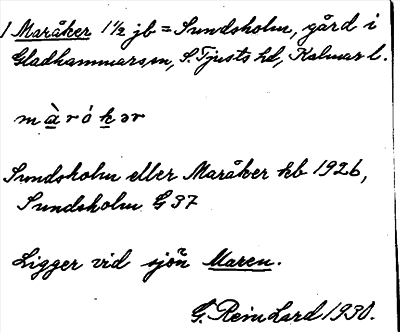 1 Maråker 1 1/2 jb = Sundsholm, gård i
Gladhammars sn, S. Tjusts hd, Kalmar l.
m à r ó k ər
Sundsholm eller Maråker kb 1926,
Sundsholm G 37
Ligger vid sjön Maren.
G. Reinhard 1930.